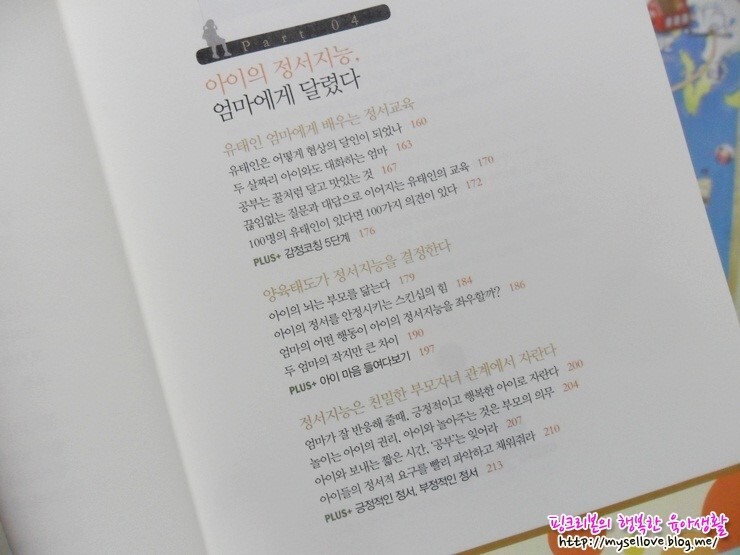 Part 04
아이의 정서지능,
엄마에게 달렸다
유태인 엄마에게 배우는 정서교육
유태인은 어떻게 협상의 달인이 되었나 160
두 살짜리 아이와도 대화하는 엄마 163
공부는 꿀처럼 달고 맛있는 것 167
끊임없는 질문과 대답으로 이어지는 유태인의 교육 170
100명의 유태인이 있다면 100가지 의견이 있다 172
PLUS+ 감정코칭 5단계 176
양육태도가 정서지능을 결정한다
아이의 뇌는 부모를 닮는다 179
아이의 정서를 안정시키는 스킨십의 힘 184
엄마의 어떤 행동이 아이의 정서지능을 좌우할까? 186
두 엄마의 작지만 큰 차이 190
PLUS+ 아이 마음 들여다보기 197
정서지능은 친밀한 부모자녀 관계에서 자란다
엄마가 잘 반응해 줄때, 긍정적이고 행복한 아이로 자란다 200
놀이는 아이의 권리, 아이와 놀아주는 것은 부모의 의무 204
아이와 보내는 짧은 시간, ‘공부’는 잊어라 207
아이들의 정서적 요구를 빨리 파악하고 채워줘라 210
PLUS+ 긍정적인 정서, 부정적인 정서 213
핑크리본의 행복한 육아생활
http://mysellove.blog.me/